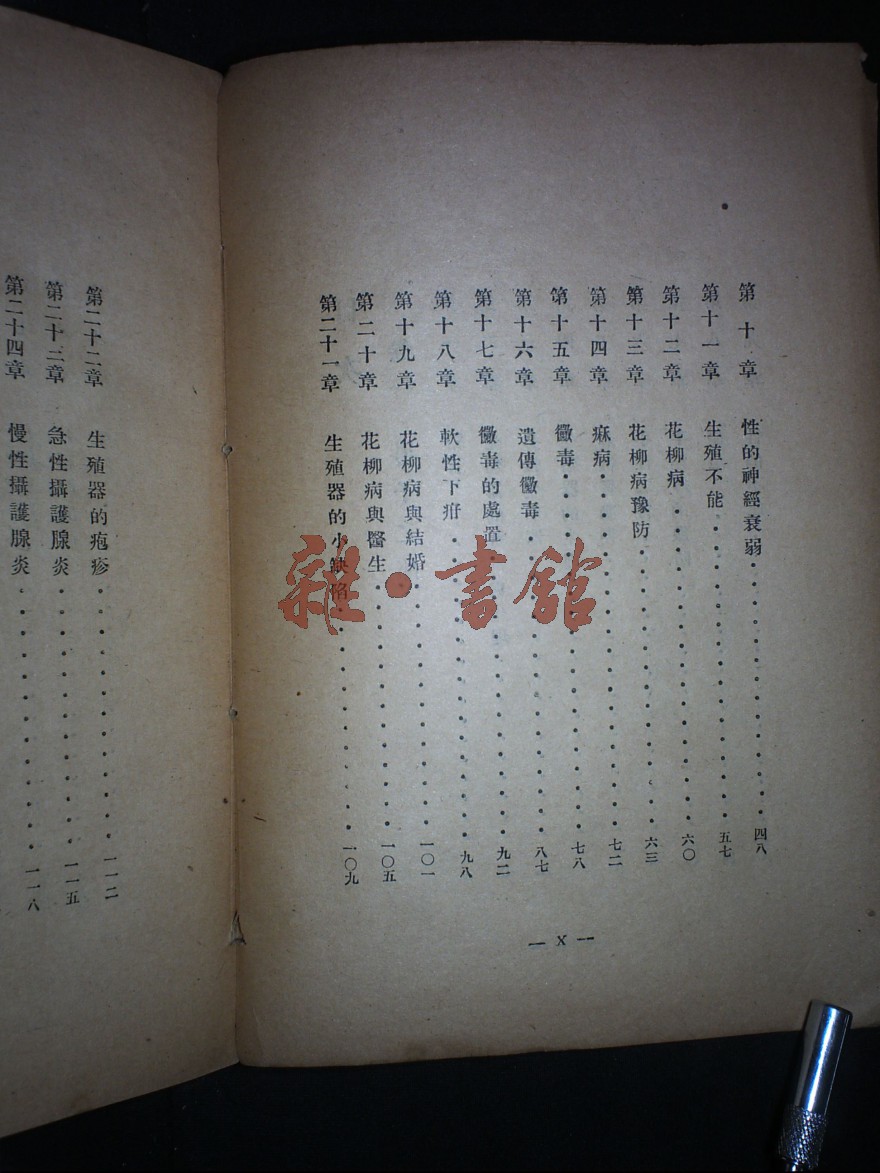 第十章 性的神經衰弱・・・・・・・・・・・・・四八
第十一章 生殖不能・・・・・・・・・・・・・五七
第十二章 花柳病・・・・・・・・・・・・・六〇
第十三章 花柳病豫防・・・・・・・・・・・・・六三
第十四章 痳病・・・・・・・・・・・・・七二
第十五章 黴毒・・・・・・・・・・・・・七八
第十六章 遺傳黴毒・・・・・・・・・・・・・八七
第十七章 黴毒的處置・・・・・・・・・・・・・九二
第十八章 軟性下疳・・・・・・・・・・・・・九八
第十九章 花柳病與結婚・・・・・・・・・・・・・一〇一
第二十章 花柳病與醫生・・・・・・・・・・・・・一〇五
第二十一章 生殖器的小缺陷・・・・・・・・・・・・・一〇九
— X —
第二十二章 生殖器的疱疹・・・・・・・・・・・・・一一二
第二十三章 急性攝護腺炎・・・・・・・・・・・・・一一五
第二十四章 慢性攝護腺炎・・・・・・・・・・・・・一一八
雜・書館